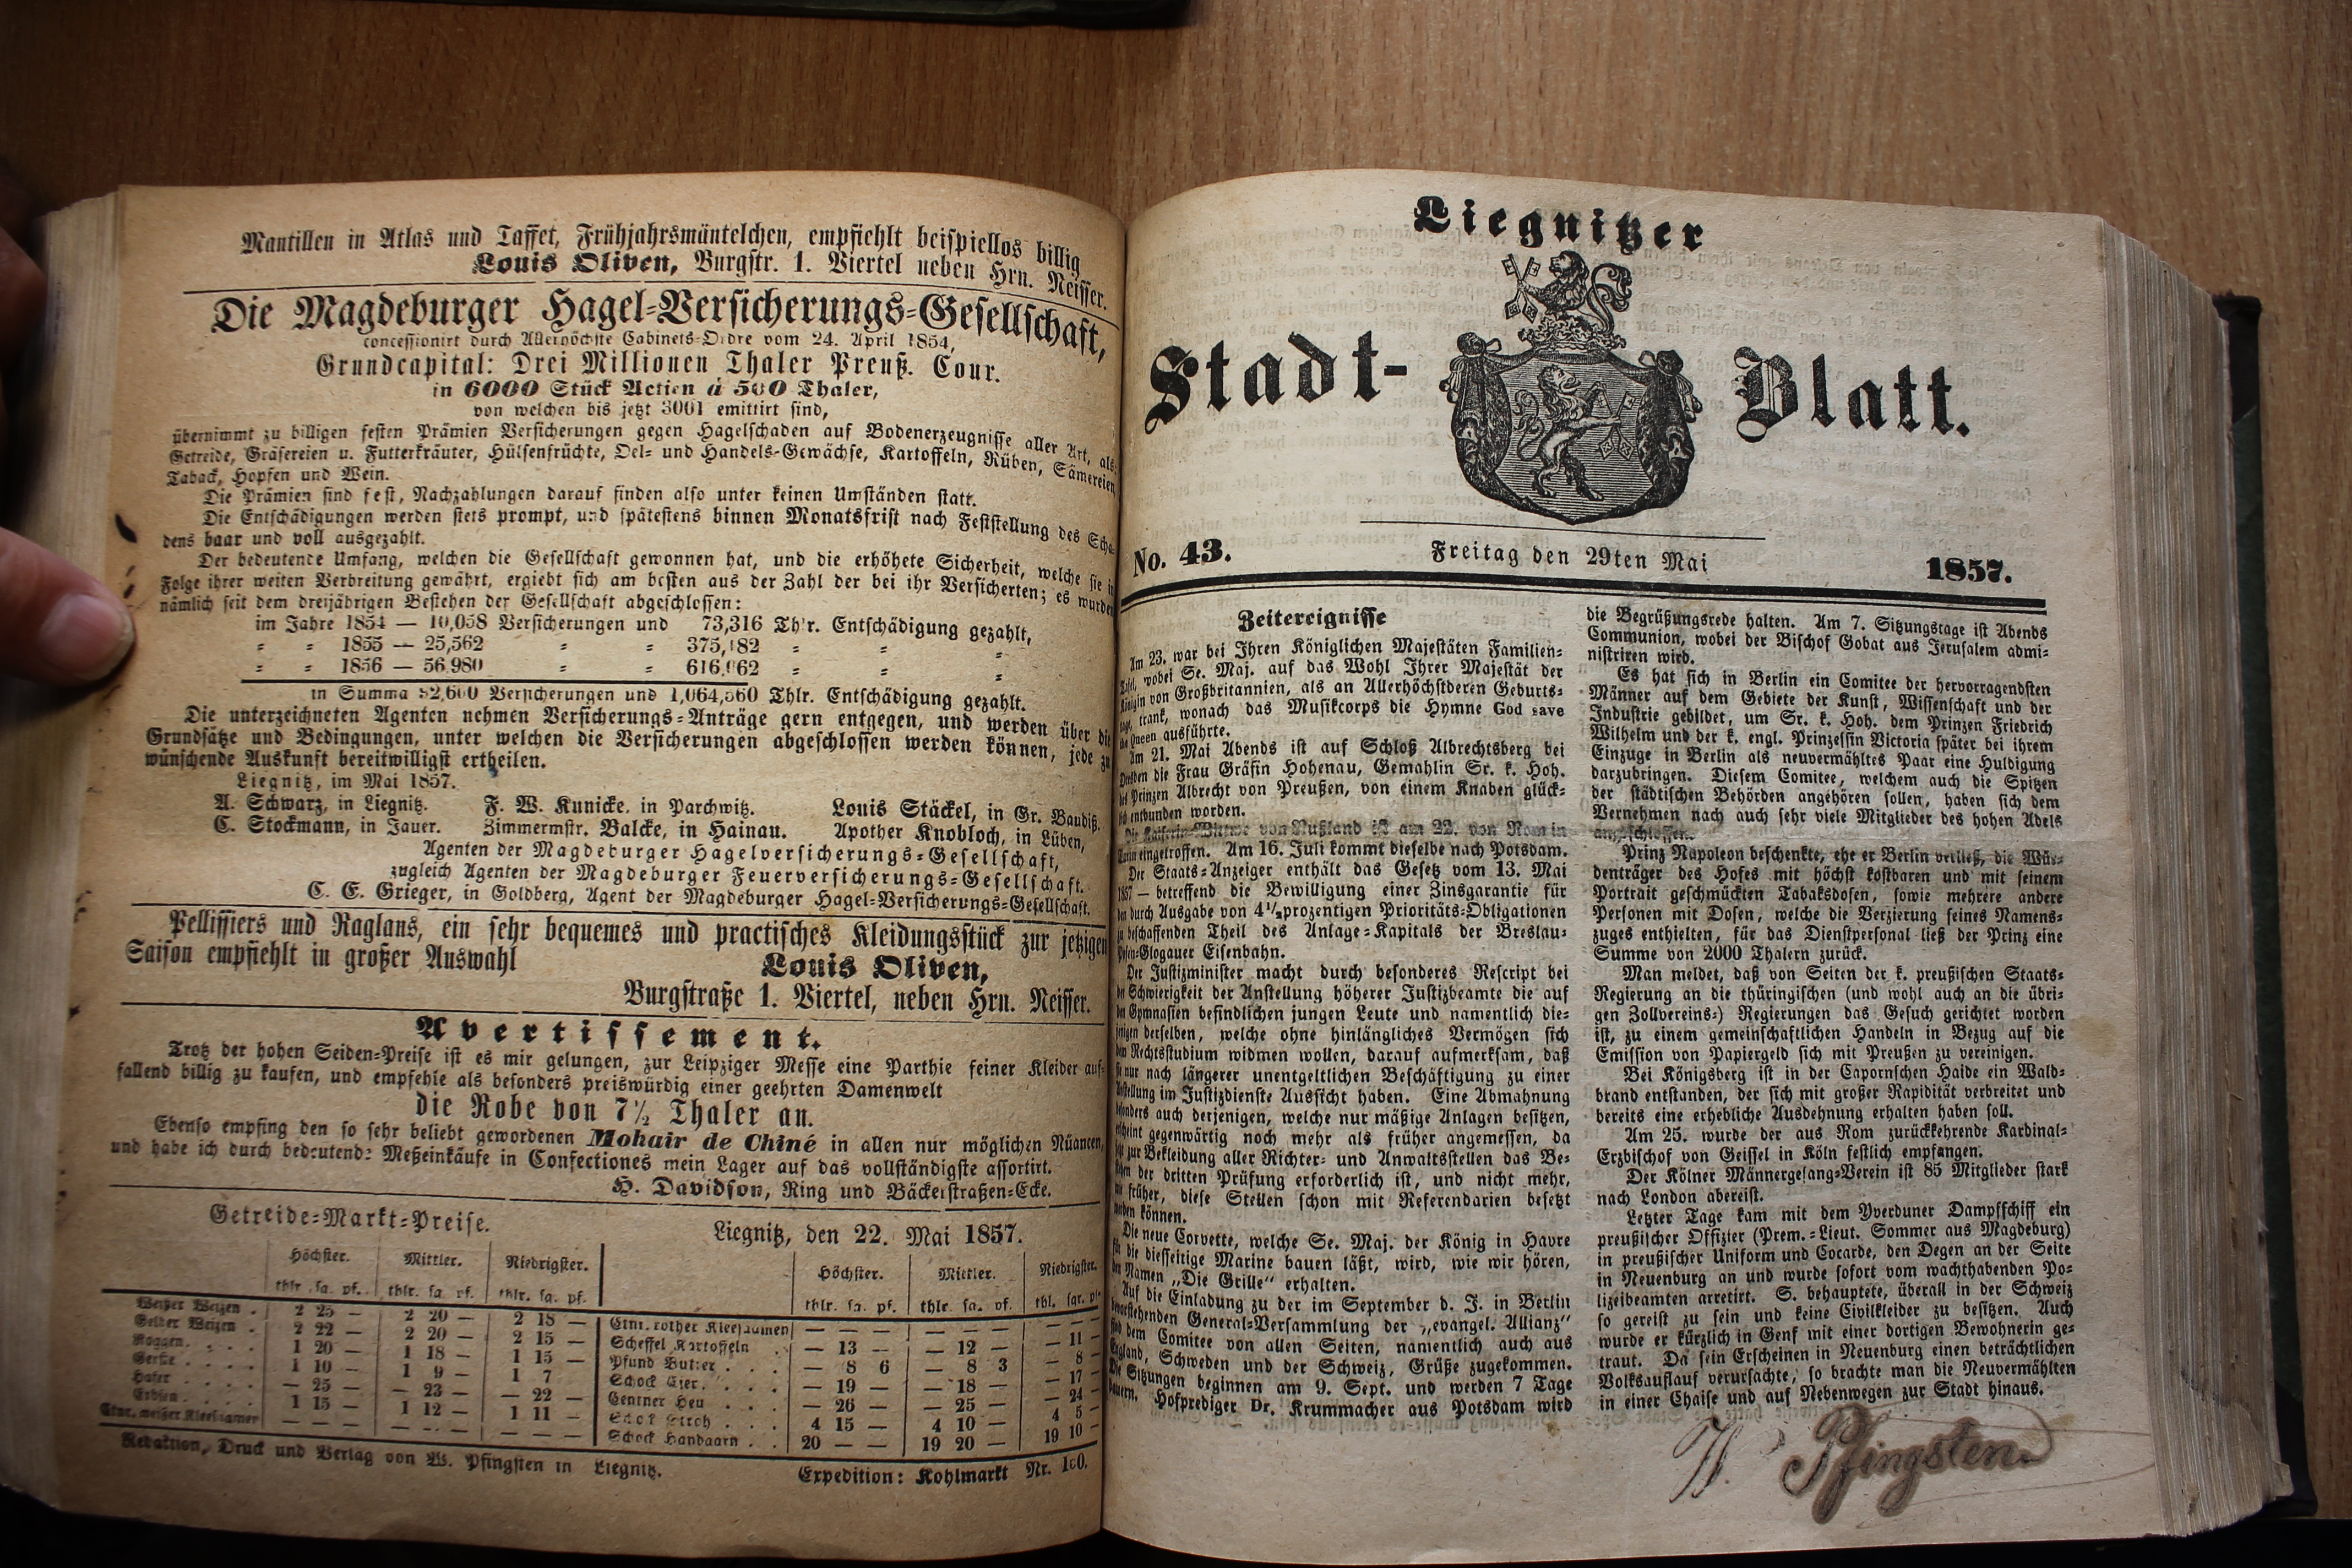 Mantillen in Atlas und Taffet, Frühjahrsmäntelchen, empfiehlt beispiellos billig
Louis Oliven, Burgstr. 1. Viertel neben Hrn. Neisser.
Die Magdeburger Hagel-Versicherungs-Gesellschaft,
concessionirt durch Allerhöchste Cabinets-Ordre vom 24. April 1854,
Grundcapital: Drei Millionen Thaler Preuß. Cour.
in 6000 Stück Actien à 500 Thaler,
von welchen bis jetzt 3001 emittirt sind,
übernimmt zu billigen festen Prämien Versicherungen gegen Hagelschaden auf Bodenerzeugnisse aller Art, als:
Getreide, Gräsereien u. Futterkräuter, Hülsenfrüchte, Oel- und Handels-Gewächse, Kartoffeln, Rüben, Sämereien,
Taback, Hopfen und Wein.
Die Prämien sind fest, Nachzahlungen darauf finden also unter keinen Umständen statt.
Die Entschädigungen werden stets prompt, und spätestens binnen Monatsfrist nach Feststellung des Scha-
dens baar und voll ausgezahlt.
Der bedeutende Umfang, welchen die Gesellschaft gewonnen hat, und die erhöhete Sicherheit, welche sie in
Folge ihrer weiten Verbreitung gewährt, ergiebt sich am besten aus der Zahl der bei ihr Versicherten; es wurden
nämlich seit dem dreijährigen Bestehen der Gesellschaft abgeschlossen:
im Jahre 1854 — 10,058 Versicherungen und 73,316 Thlr. Entschädigung gezahlt,
= = 1855 — 25,562 = = 375,182 = = =
= = 1856 — 56,980 = = 616,062 = = =
in Summa 92,600 Versicherungen und 1,064,560 Thlr. Entschädigung gezahlt.
Die unterzeichneten Agenten nehmen Versicherungs-Anträge gern entgegen, und werden über die
Grundsätze und Bedingungen, unter welchen die Versicherungen abgeschlossen werden können, jede zu
wünschende Auskunft bereitwilligst ertheilen.
Liegnitz, im Mai 1857.
A. Schwarz, in Liegnitz. F. W. Kunicke, in Parchwitz. Louis Stäckel, in Gr. Baudiß.
C. Stockmann, in Jauer. Zimmermstr. Balcke, in Hainau. Apother Knobloch, in Lüben,
Agenten der Magdeburger Hagelversicherungs-Gesellschaft,
zugleich Agenten der Magdeburger Feuerversicherungs-Gesellschaft.
C. E. Grieger, in Goldberg, Agent der Magdeburger Hagel-Versicherungs-Gesellschaft.
Pellissiers und Raglans, ein sehr bequemes und practisches Kleidungsstück zur jetzigen
Saison empfiehlt in großer Auswahl
Louis Oliven,
Burgstraße 1. Viertel, neben Hrn. Neisser.
Avertissement.
Trotz der hohen Seiden-Preise ist es mir gelungen, zur Leipziger Messe eine Parthie feiner Kleider auf-
fallend billig zu kaufen, und empfehle als besonders preiswürdig einer geehrten Damenwelt
die Robe von 7½ Thaler an.
Ebenso empfing den so sehr beliebt gewordenen Mohair de Chiné in allen nur möglichen Nüancen,
und habe ich durch bedeutende Meßeinkäufe in Confectiones mein Lager auf das vollständigste assortirt.
H. Davidson, Ring und Bäckerstraßen-Ecke.
Getreide-Markt-Preise. Liegnitz, den 22. Mai 1857.
Höchster. Mittler. Niedrigster. Höchster. Mittler. Niedrigster.
thlr. sg. pf. thlr. sg. pf. thlr. sg. pf. thlr. sg. pf. thlr. sg. pf. thl. sgr. pf.
Weißer Weizen . 2 25 — 2 20 — 2 18 — Ctnr. rother Kleesaamen — — — — — — — — —
Gelber Weizen . 2 22 — 2 20 — 2 15 — Scheffel Kartoffeln . — 13 — — 12 — — 11 —
Roggen. . . . 1 20 — 1 18 — 1 15 — Pfund Butter . . . — 8 6 — 8 3 — 8 —
Gerste . . . . 1 10 — 1 9 — 1 7 Schock Eier. . . . — 19 — — 18 — — 17 —
Hafer . . . . — 25 — — 23 — — 22 — Centner Heu . . . — 26 — — 25 — — 24 —
Erbsen. . . . 1 15 — 1 12 — 1 11 — Schock Stroh . . . 4 15 — 4 10 — 4 5 —
Ctnr. weißer Kleesamer — — — — — — — — — Schock Handgarn . . 20 — — 19 20 — 19 10 —
Redaktion, Druck und Verlag von W. Pfingsten in Liegnitz. Expedition: Kohlmarkt Nr. 100.
Liegnitzer
Stadt-Blatt.
No. 43. Freitag den 29ten Mai 1857.
Zeitereignisse
Am 23. war bei Ihren Königlichen Majestäten Familien-
Tafel, wobei Se. Maj. auf das Wohl Ihrer Majestät der
Königin von Großbritannien, als an Allerhöchstderen Geburts-
tage, trank, wonach das Musikcorps die Hymne God save
the Queen ausführte.
Am 21. Mai Abends ist auf Schloß Albrechtsberg bei
Dresden die Frau Gräfin Hohenau, Gemahlin Sr. k. Hoh.
des Prinzen Albrecht von Preußen, von einem Knaben glück-
lich entbunden worden.
Die Kaiserin-Wittwe von Rußland ist am 22. von Rom in
Turin eingetroffen. Am 16. Juli kommt dieselbe nach Potsdam.
Der Staats-Anzeiger enthält das Gesetz vom 13. Mai
1857 — betreffend die Bewilligung einer Zinsgarantie für
den durch Ausgabe von 4½prozentigen Prioritäts-Obligationen
zu beschaffenden Theil des Anlage-Kapitals der Breslau-
Posen-Glogauer Eisenbahn.
Der Justizminister macht durch besonderes Rescript bei
der Schwierigkeit der Anstellung höherer Justizbeamte die auf
den Gymnasien befindlichen jungen Leute und namentlich die-
jenigen derselben, welche ohne hinlängliches Vermögen sich
dem Rechtsstudium widmen wollen, darauf aufmerksam, daß
sie nur nach längerer unentgeltlichen Beschäftigung zu einer
Anstellung im Justizdienste Aussicht haben. Eine Abmahnung
besonders auch derjenigen, welche nur mäßige Anlagen besitzen,
erscheint gegenwärtig noch mehr als früher angemessen, da
jetzt zur Bekleidung aller Richter- und Anwaltsstellen das Be-
stehen der dritten Prüfung erforderlich ist, und nicht mehr,
wie früher, diese Stellen schon mit Referendarien besetzt
werden können.
Die neue Corvette, welche Se. Maj. der König in Havre
für die diesseitige Marine bauen läßt, wird, wie wir hören,
den Namen „Die Grille“ erhalten.
Auf die Einladung zu der im September d. J. in Berlin
bevorstehenden General-Versammlung der „evangel. Allianz“
sind dem Comitee von allen Seiten, namentlich auch aus
England, Schweden und der Schweiz, Grüße zugekommen.
Die Sitzungen beginnen am 9. Sept. und werden 7 Tage
dauern. Hofprediger Dr. Krummacher aus Potsdam wird
die Begrüßungsrede halten. Am 7. Sitzungstage ist Abends
Communion, wobei der Bischof Gobat aus Jerusalem admi-
nistriren wird.
Es hat sich in Berlin ein Comitee der hervorragendsten
Männer auf dem Gebiete der Kunst, Wissenschaft und der
Industrie gebildet, um Sr. k. Hoh. dem Prinzen Friedrich
Wilhelm und der k. engl. Prinzessin Victoria später bei ihrem
Einzuge in Berlin als neuvermähltes Paar eine Huldigung
darzubringen. Diesem Comitee, welchem auch die Spitzen
der städtischen Behörden angehören sollen, haben sich dem
Vernehmen nach auch sehr viele Mitglieder des hohen Adels
angeschlossen.
Prinz Napoleon beschenkte, ehe er Berlin verließ, die Wür-
denträger des Hofes mit höchst kostbaren und mit seinem
Portrait geschmückten Tabaksdosen, sowie mehrere andere
Personen mit Dosen, welche die Verzierung seines Namens-
zuges enthielten, für das Dienstpersonal ließ der Prinz eine
Summe von 2000 Thalern zurück.
Man meldet, daß von Seiten der k. preußischen Staats-
Regierung an die thüringischen (und wohl auch an die übri-
gen Zollvereins-) Regierungen das Gesuch gerichtet worden
ist, zu einem gemeinschaftlichen Handeln in Bezug auf die
Emission von Papiergeld sich mit Preußen zu vereinigen.
Bei Königsberg ist in der Capornschen Haide ein Wald-
brand entstanden, der sich mit großer Rapidität verbreitet und
bereits eine erhebliche Ausdehnung erhalten haben soll.
Am 25. wurde der aus Rom zurückkehrende Kardinal-
Erzbischof von Geissel in Köln festlich empfangen.
Der Kölner Männergesang-Verein ist 85 Mitglieder stark
nach London abereist.
Letzter Tage kam mit dem Yverduner Dampfschiff ein
preußischer Offizier (Prem.-Lieut. Sommer aus Magdeburg)
in preußischer Uniform und Cocarde, den Degen an der Seite
in Neuenburg an und wurde sofort vom wachthabenden Po-
lizeibeamten arretirt. S. behauptete, überall in der Schweiz
so gereist zu sein und keine Civilkleider zu besitzen. Auch
wurde er kürzlich in Genf mit einer dortigen Bewohnerin ge-
traut. Da sein Erscheinen in Neuenburg einen beträchtlichen
Volksauflauf verursachte, so brachte man die Neuvermählten
in einer Chaise und auf Nebenwegen zur Stadt hinaus.
W. Pfingsten